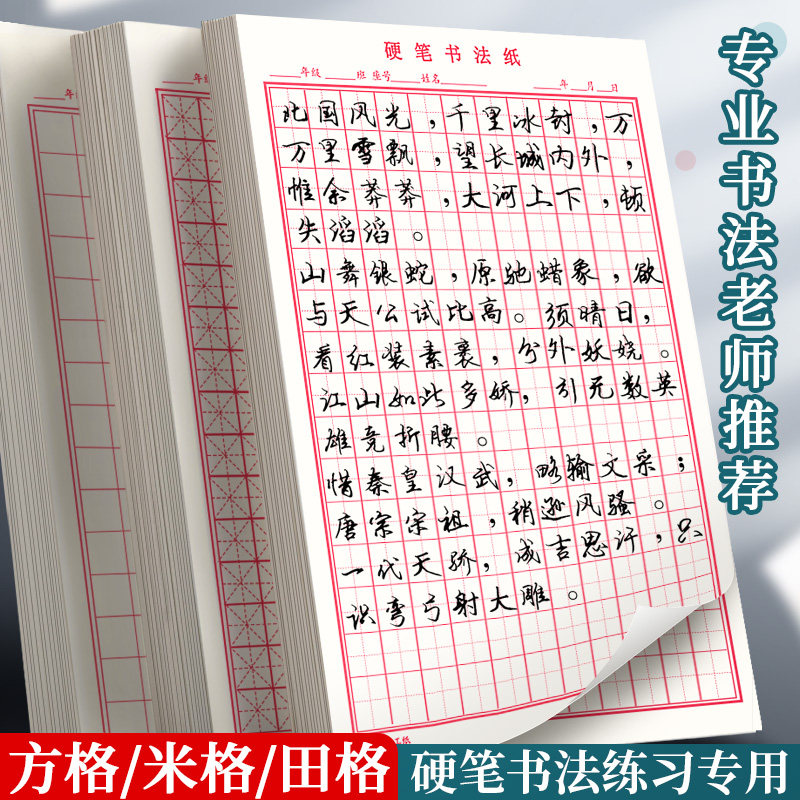 硬笔书法纸
年级 班 座号 姓名 年 月 日
北国风光，千里冰封，万
万里雪飘，望长城内外，
惟余莽莽，大河上下，顿
失滔滔。
山舞银蛇，原驰蜡象，欲
与天公试比高。须晴日，
看红装素裹，分外妖娆。
江山如此多娇，引无数英
雄竞折腰。
惜秦皇汉武，略输文采；
唐宗宗祖，稍逊风骚。
一代天骄，成吉思汗，只
识弯弓射大雕。
年级
年
专业书法老师推荐
方格/米格/田格
硬笔书法练习专用